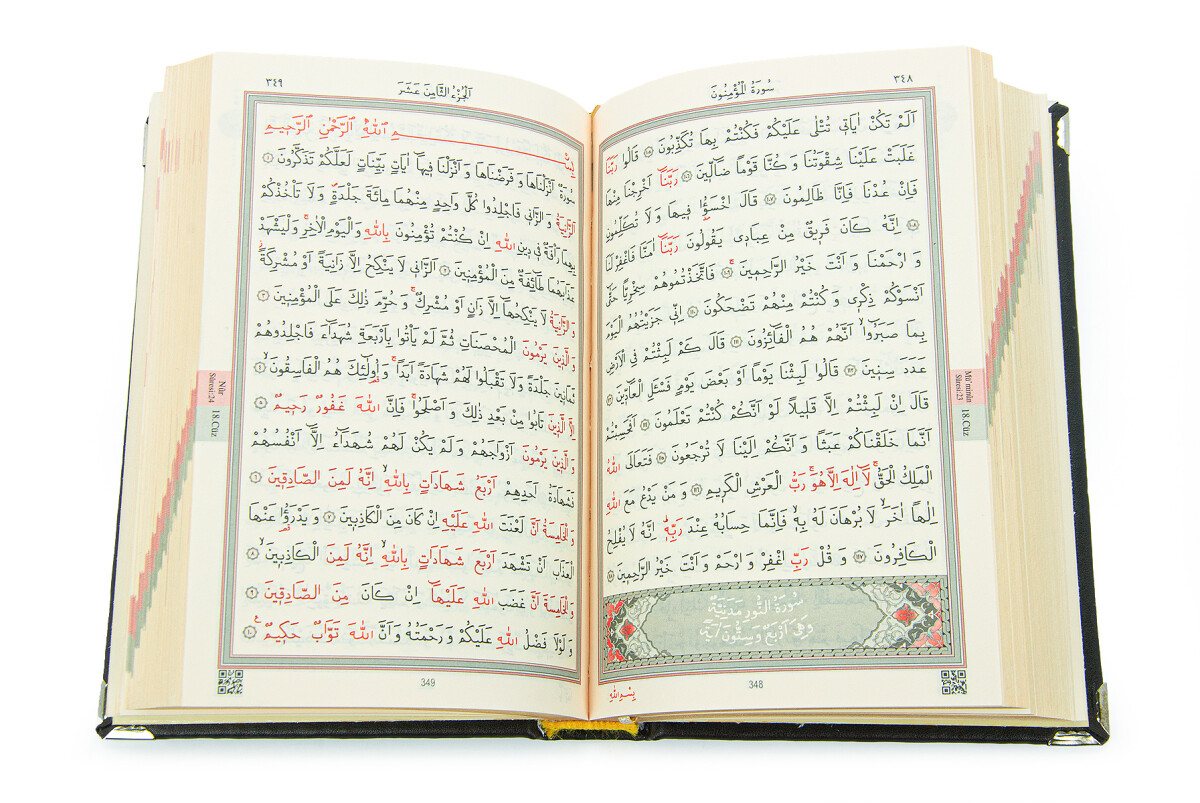 ٣٤٨
سُورَةُ الْمُؤْمِنُونَ
اَلَمْ تَكُنْ اٰيَاتٖي تُتْلٰى عَلَيْكُمْ فَكُنْتُمْ بِهَا تُكَذِّبُونَ ١٠٥ قَالُوا رَبَّنَا
غَلَبَتْ عَلَيْنَا شِقْوَتُنَا وَكُنَّا قَوْمًا ضَٓالّٖينَ ١٠٦ رَبَّنَٓا اَخْرِجْنَا مِنْهَا
فَاِنْ عُدْنَا فَاِنَّا ظَالِمُونَ ١٠٧ قَالَ اخْسَؤُ۫ا فٖيهَا وَلَا تُكَلِّمُونِ
١٠٨ اِنَّهُ كَانَ فَرٖيقٌ مِنْ عِبَادٖي يَقُولُونَ رَبَّنَٓا اٰمَنَّا فَاغْفِرْ لَنَا
وَارْحَمْنَا وَاَنْتَ خَيْرُ الرَّاحِمٖينَۚ ١٠٩ فَاتَّخَذْتُمُوهُمْ سِخْرِيًّا حَتّٰٓى
اَنْسَوْكُمْ ذِكْرٖي وَكُنْتُمْ مِنْهُمْ تَضْحَكُونَ ١١٠ اِنّٖي جَزَيْتُهُمُ الْيَوْمَ
بِمَا صَبَرُٓواۙ اَنَّهُمْ هُمُ الْفَٓائِزُونَ ١١١ قَالَ كَمْ لَبِثْتُمْ فِي الْاَرْضِ
عَدَدَ سِنٖينَ ١١٢ قَالُوا لَبِثْنَا يَوْمًا اَوْ بَعْضَ يَوْمٍ فَسْـَٔلِ الْعَٓادّٖينَ ١١٣
قَالَ اِنْ لَبِثْتُمْ اِلَّا قَلٖيلًا لَوْ اَنَّكُمْ كُنْتُمْ تَعْلَمُونَ ١١٤ اَفَحَسِبْتُمْ
اَنَّمَا خَلَقْنَاكُمْ عَبَثًا وَاَنَّكُمْ اِلَيْنَا لَا تُرْجَعُونَ ١١٥ فَتَعَالَى اللّٰهُ
الْمَلِكُ الْحَقُّۚ لَٓا اِلٰهَ اِلَّا هُوَۚ رَبُّ الْعَرْشِ الْكَرٖيمِ ١١٦ وَمَنْ يَدْعُ مَعَ اللّٰهِ
اِلٰهًا اٰخَرَۙ لَا بُرْهَانَ لَهُ بِهٖۙ فَاِنَّمَا حِسَابُهُ عِنْدَ رَبِّهٖؕ اِنَّهُ لَا يُفْلِحُ
الْكَافِرُونَ ١١٧ وَقُلْ رَبِّ اغْفِرْ وَارْحَمْ وَاَنْتَ خَيْرُ الرَّاحِمٖينَ ١١٨
سُورَةُ النُّورِ مَدَنِيَّةٌ
وَهِيَ اَرْبَعٌ وَسِتُّونَ اٰيَةً
Mü'minûn
Sûresi:23
18.Cüz
348
بِسْمِ اللّٰهِ
٣٤٩
اَلْجُزْءُ الثَّامِنَ عَشَرَ
بِسْــــمِ اللّٰهِ الرَّحْمٰنِ الرَّحٖيمِ
سُورَةٌ اَنْزَلْنَاهَا وَفَرَضْنَاهَا وَاَنْزَلْنَا فٖيهَٓا اٰيَاتٍ بَيِّنَاتٍ لَعَلَّكُمْ تَذَكَّرُونَ ١
اَلزَّانِيَةُ وَالزَّانٖي فَاجْلِدُوا كُلَّ وَاحِدٍ مِنْهُمَا مِائَةَ جَلْدَةٍࣕ وَلَا تَأْخُذْكُمْ
بِهِمَا رَأْفَةٌ فٖي دٖينِ اللّٰهِ اِنْ كُنْتُمْ تُؤْمِنُونَ بِاللّٰهِ وَالْيَوْمِ الْاٰخِرِۚ وَلْيَشْهَدْ
عَذَابَهُمَا طَٓائِفَةٌ مِنَ الْمُؤْمِنٖينَ ٢ اَلزَّانٖي لَا يَنْكِحُ اِلَّا زَانِيَةً اَوْ مُشْرِكَةًؗ
وَالزَّانِيَةُ لَا يَنْكِحُهَٓا اِلَّا زَانٍ اَوْ مُشْرِكٌۚ وَحُرِّمَ ذٰلِكَ عَلَى الْمُؤْمِنٖينَ ٣
وَالَّذٖينَ يَرْمُونَ الْمُحْصَنَاتِ ثُمَّ لَمْ يَأْتُوا بِاَرْبَعَةِ شُهَدَٓاءَ فَاجْلِدُوهُمْ
ثَمَانٖينَ جَلْدَةً وَلَا تَقْبَلُوا لَهُمْ شَهَادَةً اَبَدًاۚ وَاُو۬لٰٓئِكَ هُمُ الْفَاسِقُونَۙ ٤
اِلَّا الَّذٖينَ تَابُوا مِنْ بَعْدِ ذٰلِكَ وَاَصْلَحُواۚ فَاِنَّ اللّٰهَ غَفُورٌ رَحٖيمٌ ٥
وَالَّذٖينَ يَرْمُونَ اَزْوَاجَهُمْ وَلَمْ يَكُنْ لَهُمْ شُهَدَٓاءُ اِلَّٓا اَنْفُسُهُمْ
فَشَهَادَةُ اَحَدِهِمْ اَرْبَعُ شَهَادَاتٍ بِاللّٰهِۙ اِنَّهُ لَمِنَ الصَّادِقٖينَ ٦
وَالْخَامِسَةُ اَنَّ لَعْنَتَ اللّٰهِ عَلَيْهِ اِنْ كَانَ مِنَ الْكَاذِبٖينَ ٧ وَيَدْرَؤُ۬ا عَنْهَا
الْعَذَابَ اَنْ تَشْهَدَ اَرْبَعَ شَهَادَاتٍ بِاللّٰهِۙ اِنَّهُ لَمِنَ الْكَاذِبٖينَۙ ٨
وَالْخَامِسَةَ اَنَّ غَضَبَ اللّٰهِ عَلَيْهَٓا اِنْ كَانَ مِنَ الصَّادِقٖينَ ٩
وَلَوْلَا فَضْلُ اللّٰهِ عَلَيْكُمْ وَرَحْمَتُهُ وَاَنَّ اللّٰهَ تَوَّابٌ حَكٖيمٌ۟ ١٠
Nûr
Sûresi:24
18.Cüz
349